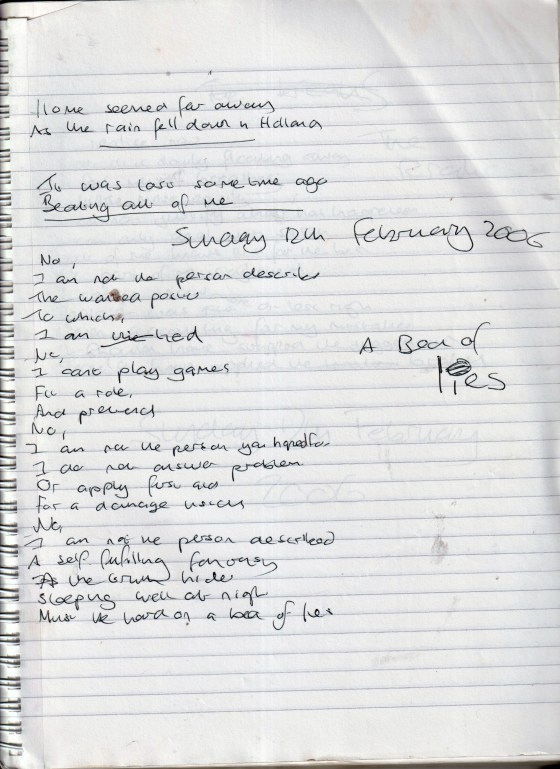 Home seemed far away
As the rain fell down in Holland
It was lost sometime ago
Beating out of me
Sunday 12th February 2006
No,
I am not the person described
The wanted poster
To which,
I am
A Bed of
lies
No,
I cant play games
Fill a role,
And pretend
No,
I am not the person you hoped for
I do not answer problem
Or apply first aid
For a damage
No,
I am not the person described
A self fulfilling fantasy
As the hide
Sleeping well at night
Must be hard on a bed of lies